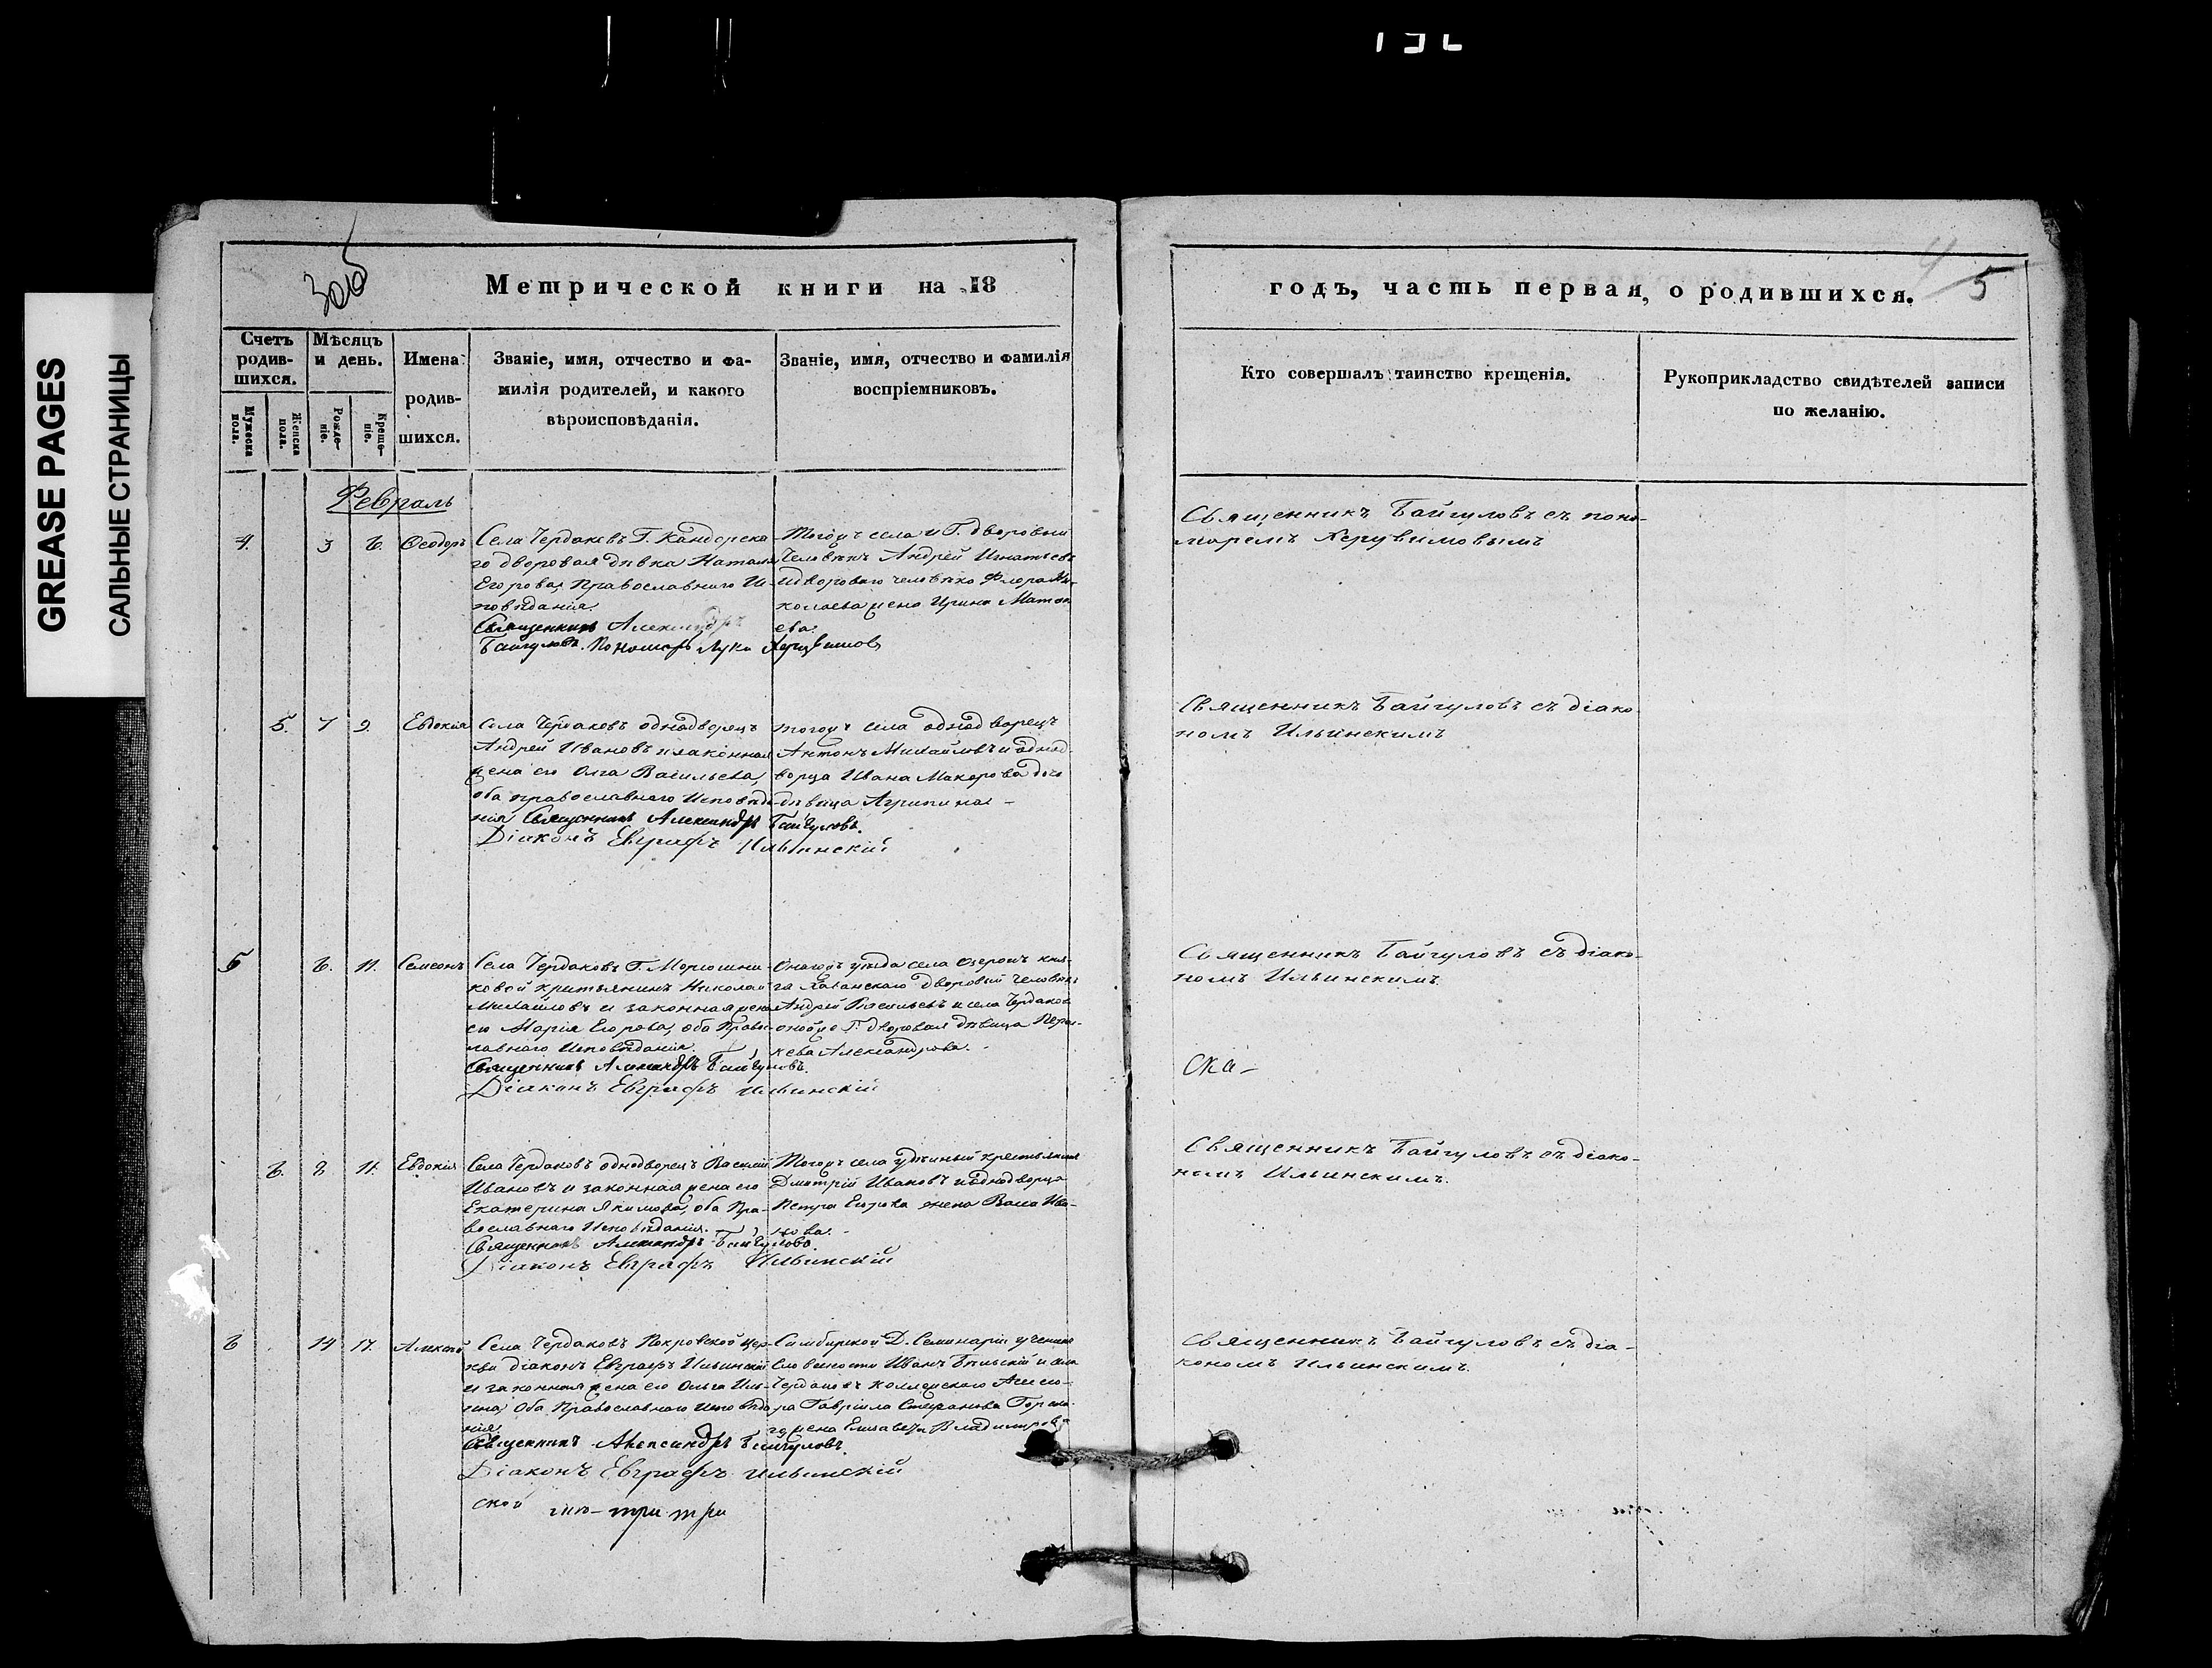 GREASE PAGES
САЛЬНЫЕ СТРАНИЦЫ
Метрической книги на 18
годъ, часть первая, о родившихся.
5
Счетъ родив-шихся.
Мужеска пола.
Женска пола.
Мѣсяцъ и день.
Рожде-ніе.
Креще-ніе.
Имена родив-шихся.
Званіе, имя, отчество и фа-
милія родителей, и какого
вѣроисповѣданія.
Званіе, имя, отчество и фамилія
воспріемниковъ.
Кто совершалъ таинство крещенія.
Рукоприкладство свидѣтелей записи
по желанію.
Февраль
4. 3 6. Ѳеодоръ
Села Чердаковъ Г.
го дворовая дѣвка Наталья
Егорова, Православнаго И-
повѣданія.
Священникъ Александръ
Байгуловъ. Пономарь Лука Херувимовъ
Тогожъ села и Г. дворовый
человѣкъ Андрей Игнатьевъ
и двороваго человѣка Флора Ни-
колаева жена Ирина Матве
ева.
Священникъ Байгуловъ съ поно-
маремъ Херувимовымъ
5. 7 9. Евдокія
Села Чердаковъ однодворецъ
Андрей Ивановъ и законная
жена его Олга Васильева,
оба православнаго Исповѣда-
нія Священникъ Александръ Байгуловъ.
Діаконъ Евграфъ Ильинскій
тогожъ села однодворецъ
Антонъ Михайловъ и однод-
ворца Ивана Макарова дочь
дѣвица Агрипина
Священникъ Байгуловъ съ діако
номъ Ильинскимъ
5 6. 11. Симеонъ
Села Чердаковъ Г.
ковой крестьянинъ Николай
Михайловъ и законная жена
его Марія Егорова, оба Правос-
лавнаго Исповѣданія.
Священникъ Александръ Байгуловъ.
Діаконъ Евграфъ Ильинскій
Онагожъ уѣзда села Озерокъ кня-
зя Хаванскаго дворовый человѣкъ
Андрей Васильевъ и села Чердаков
Г. дворовая дѣвица Парас-
кева Александрова.
Священникъ Байгуловъ съ діако-
номъ Ильинскимъ.
Ска-
6. 8 11. Евдокія
Села Чердаковъ однодворецъ Василій
Ивановъ и законная жена его
Екатерина Якимова, оба Пра-
вославнаго Исповѣданія.
Священникъ Александръ Байгуловъ
Діаконъ Евграфъ Ильинскій
Тогожъ села удѣльный крестьянинъ
Дмитрій Ивановъ и однодворца
Петра Егорова жена Васа Ива-
нова.
Священникъ Байгуловъ съ діако-
номъ Ильинскимъ.
6 14 17. Алексѣй
Села Чердаковъ Покровской цер-
кви діаконъ Евграфъ Ильинскій
и законная жена его Ольга Иль-
ина, Оба Православнаго Исповѣда
нія.
Священникъ Александръ Байгуловъ.
Діаконъ Евграфъ Ильинскій
Симбирской Д. Семинаріи ученикъ
Словесности Иванъ Бѣльскій и села
Чердаковъ коллежскаго Асесо-
ра Гавріила Стефанова
жена Елисавета Владимірова
Священникъ Байгуловъ съ діа-
кономъ Ильинскимъ.
ской
три три